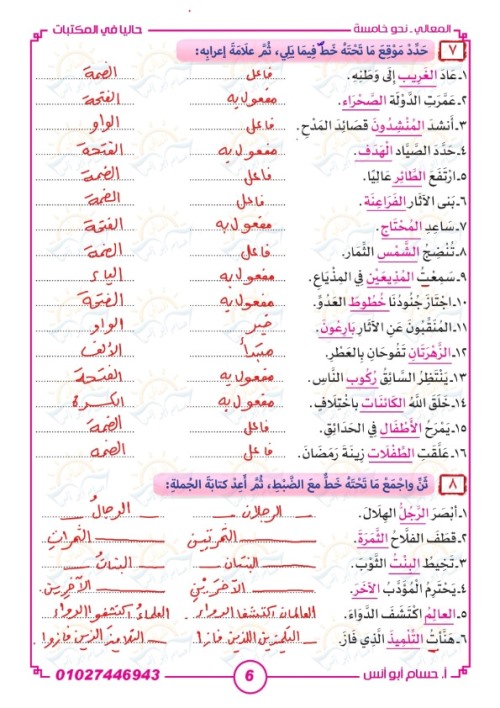 المعالي . نحو خامسة حاليا في المكتبات
٧ حَدِّدْ مَوْقِعَ مَا تَحْتَهُ خَطٌّ فِيمَا يَلِي، ثُمَّ عَلَامَةَ إعرابِهِ:
١ـ عَادَ الغَرِيب إلى وَطَنِهِ. فاعل الضمة
٢ـ عَمَّرَتِ الدَّوْلَة الصَّحْرَاء. مفعول به الفتحة
٣ـ أَنشَدَ المُنْشِدُونَ قصَائِدَ المَدْحِ. فاعل الواو
٤ـ حَدَّدَ الصَّيَّاد الهَدَف. مفعول به الفتحة
٥ـ ارْتَفَعَ الطَّائِر عَالِيًا. فاعل الضمة
٦ـ بَنَى الآثَار الفَرَاعِنَة. فاعل الضمة
٧ـ سَاعِدِ المُحْتَاج. مفعول به الفتحة
٨ـ تُنْضِجُ الشَّمْس الثِّمَار. فاعل الضمة
٩ـ سَمِعْتُ المُذِيعَيْنِ فِي المِذْيَاعِ. مفعول به الياء
١٠ـ اجْتَازَ جُنُودُنَا خُطُوطَ العَدُوِّ. مفعول به الفتحة
١١ـ المُنَقِّبُونَ عَنِ الآثَارِ بَارِعُونَ. خبر الواو
١٢ـ الزَّهْرَتَانِ تَفُوحَانِ بِالعَطْرِ. مبتدأ الألف
١٣ـ يَنْتَظِرُ السَّائِقُ رُكُوب النَّاسِ. مفعول به الفتحة
١٤ـ خَلَقَ اللهُ الكَائِنَات بِاخْتِلَافٍ. مفعول به الكسرة
١٥ـ يَمْرَحُ الأَطْفَال فِي الحَدَائِقِ. فاعل الضمة
١٦ـ عَلَّقَتِ الطِّفْلَات زِينَةَ رَمَضَانَ. فاعل الضمه
٨ ثَنِّ واجْمَعْ مَا تَحْتَهُ خَطٌّ معَ الضَّبْطِ، ثُمَّ أَعِدْ كتابَةَ الجُملةِ:
١ـ أبْصَرَ الرَّجُلُ الهِلَالَ. الرجلان الرجالُ
٢ـ قَطَفَ الفَلَّاحُ الثَّمْرَةَ. الثمرتين الثمراتِ
٣ـ تَخِيطُ البِنْتُ الثَّوْبَ. البنتان البناتُ
٤ـ يَحْتَرِمُ المُؤَدَّبُ الآخَرَ. الآخرَيْنِ الآخرِين
٥ـ العَالِمُ اكْتَشَفَ الدَّوَاءَ. العالمان اكتشفا الدواء العلماءُ اكتشفوا الدواء
٦ـ هَنَّأْتُ التِّلْمِيذَ الَّذِي فَازَ. التلميذين اللذين فازا التلاميذَ الذين فازوا
أ. حسام أبو أنس 6 01027446943